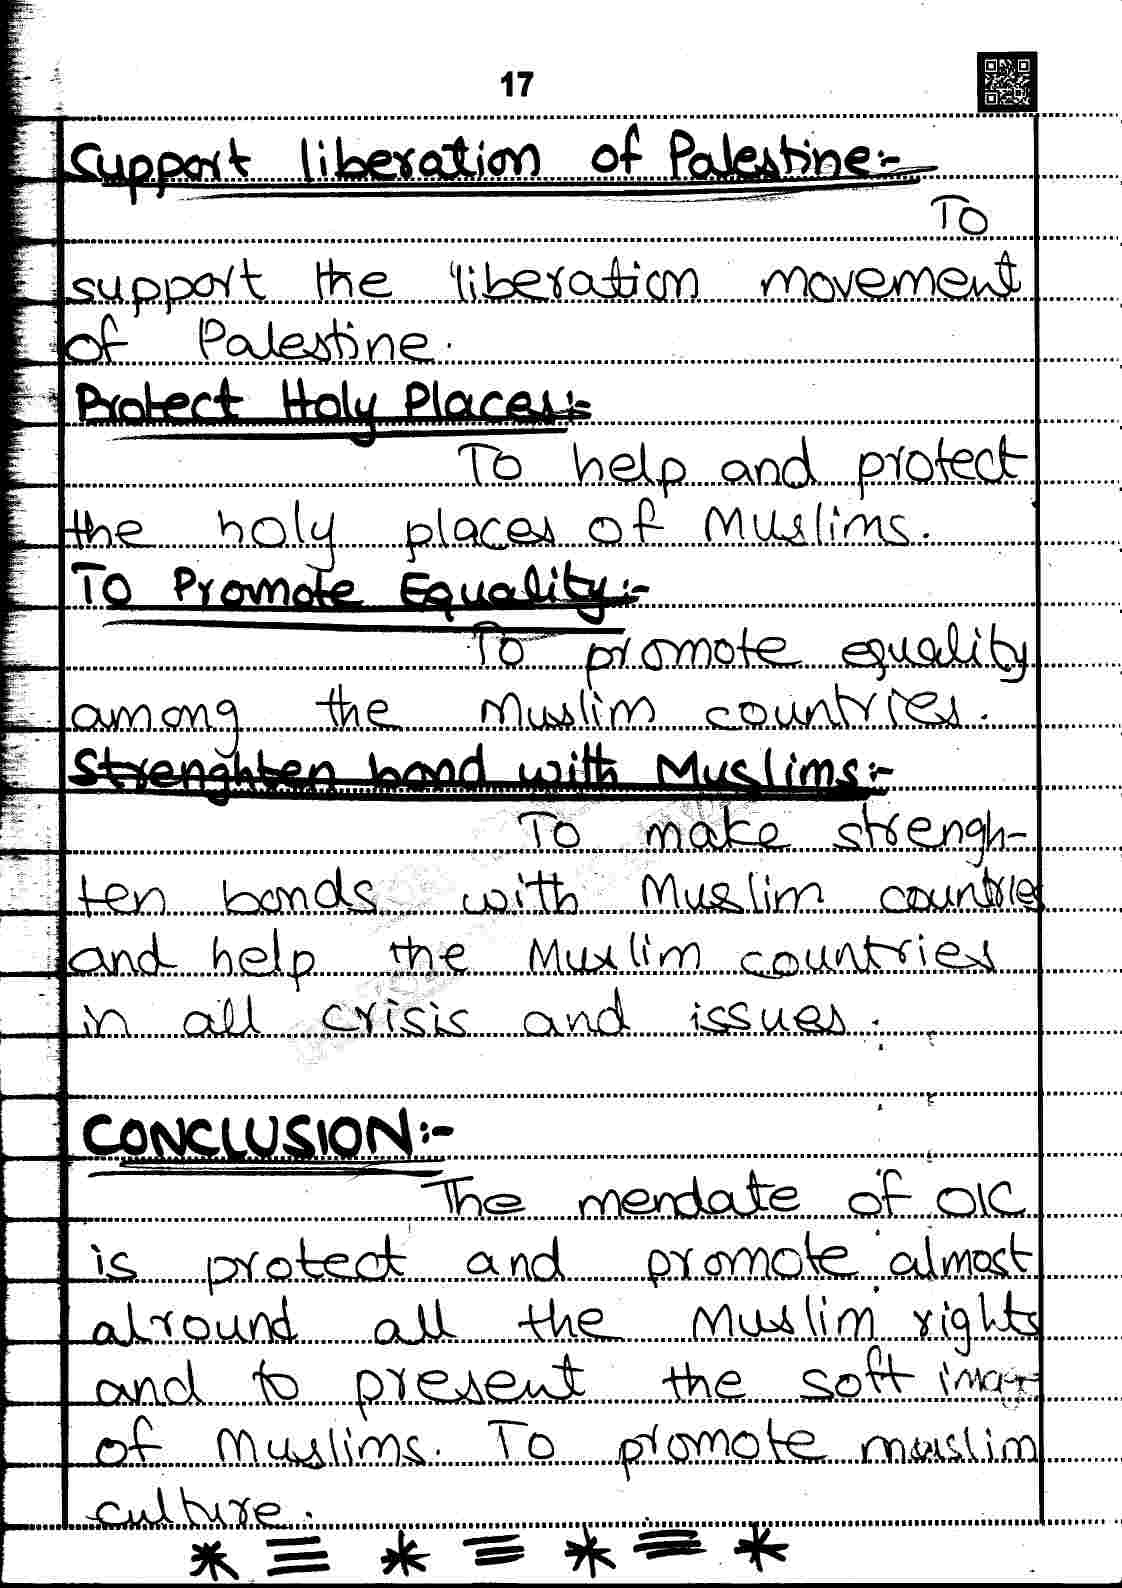 17
Support liberation of Palestine:-
To
support the liberation movement
of Palestine.
Protect Holy Places:-
To help and protect
the holy places of Muslims.
To Promote Equality:-
To promote equality
among the Muslim countries.
Strenghten bond with Muslims:-
To make strengh-
ten bonds with Muslim countries
and help the Muslim countries
in all crisis and issues.
CONCLUSION:-
The mendate of OIC
is protect and promote almost
alround all the Muslim rights
and to present the soft image
of Muslims. To promote muslim
culture.